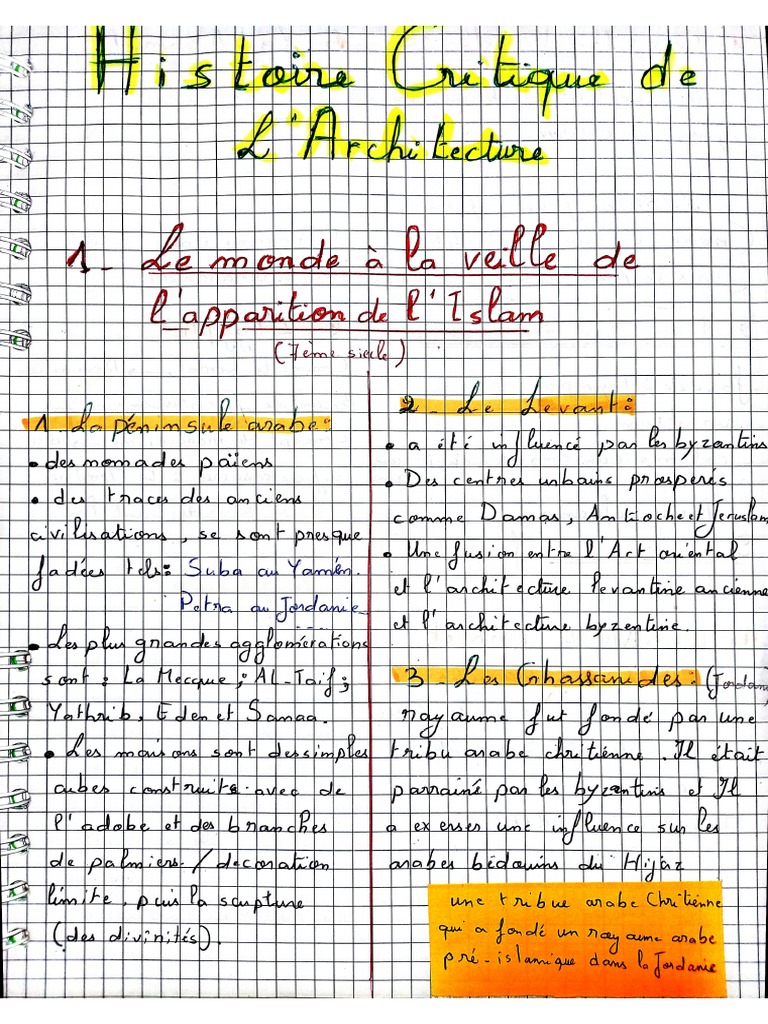 Histoire Critique de
L'Architecture
1- Le monde à la veille de
l'apparition de l'Islam
(7ème siecle)
1. La péninsule arabe:
• des nomades païens
• des traces des anciens
civilisations, se sont presque
fadées tels: Suba au Yamén.
Petra au Jordanie
• Les plus grandes agglomérations
sont : La Mecque ; AL-Taif ;
Yathrib, Eden et Sanaa.
• Les maisons sont des simples
cubes construits avec de
l'adobe et des branches
de palmiers. / decoration
limite, puis la scupture
(des divinités).
2 - Le Levant:
• a été influencé par les byzantins
• Des centres urbains prosperés
comme Damas, Antioche et Jeruslam
• Une fusion entre l'Art oriental
et l'architecture levantine ancienne
et l'architecture byzentine.
3 - Les Ghassanides: (Jordanie)
royaume fut fondé par une
tribu arabe chritiénne. Il était
parrainé par les byzentins et Il
a exerser une influence sur les
arabes bédouins du Hijaz
une tribue arabe Chritiénne
qui a fondé un royaume arabe
pré-islamique dans la Jordanie